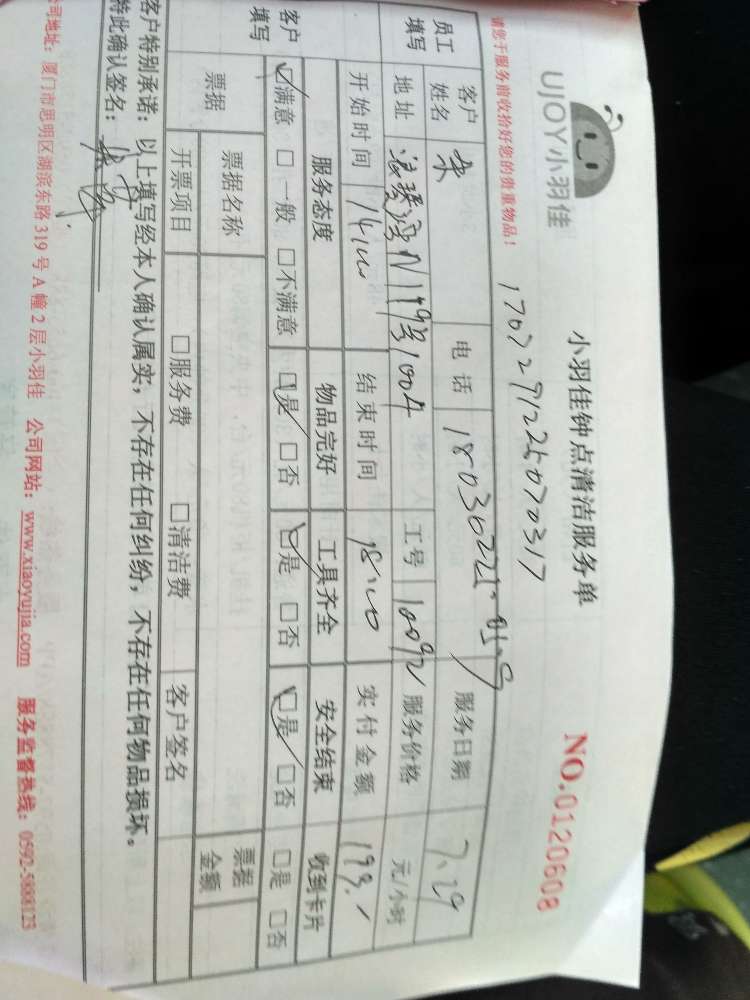 UJOY小羽佳
小羽佳钟点清洁服务单
NO.0120608
请您于服务前收拾好您的贵重物品！
1707291225070317
员工填写
客户姓名
电话
服务日期 7.29
地址
工号 10092
服务价格 元/小时
开始时间 14:00
结束时间 18:00
实付金额
客户填写
服务态度 物品完好 工具齐全 安全结束 收到卡片
☑满意 □一般 □不满意 ☑是 □否 ☑是 □否 ☑是 □否 □是 □否
票据
票据名称
票据金额
开票项目 □服务费 □清洁费 客户签名
客户特别承诺：以上填写经本人确认属实，不存在任何纠纷，不存在任何物品损坏。
特此确认签名：
公司地址：厦门市思明区湖滨东路319号A幢2层小羽佳 公司网站：www.xiaoyujia.com 服务监督热线：0592-5888123